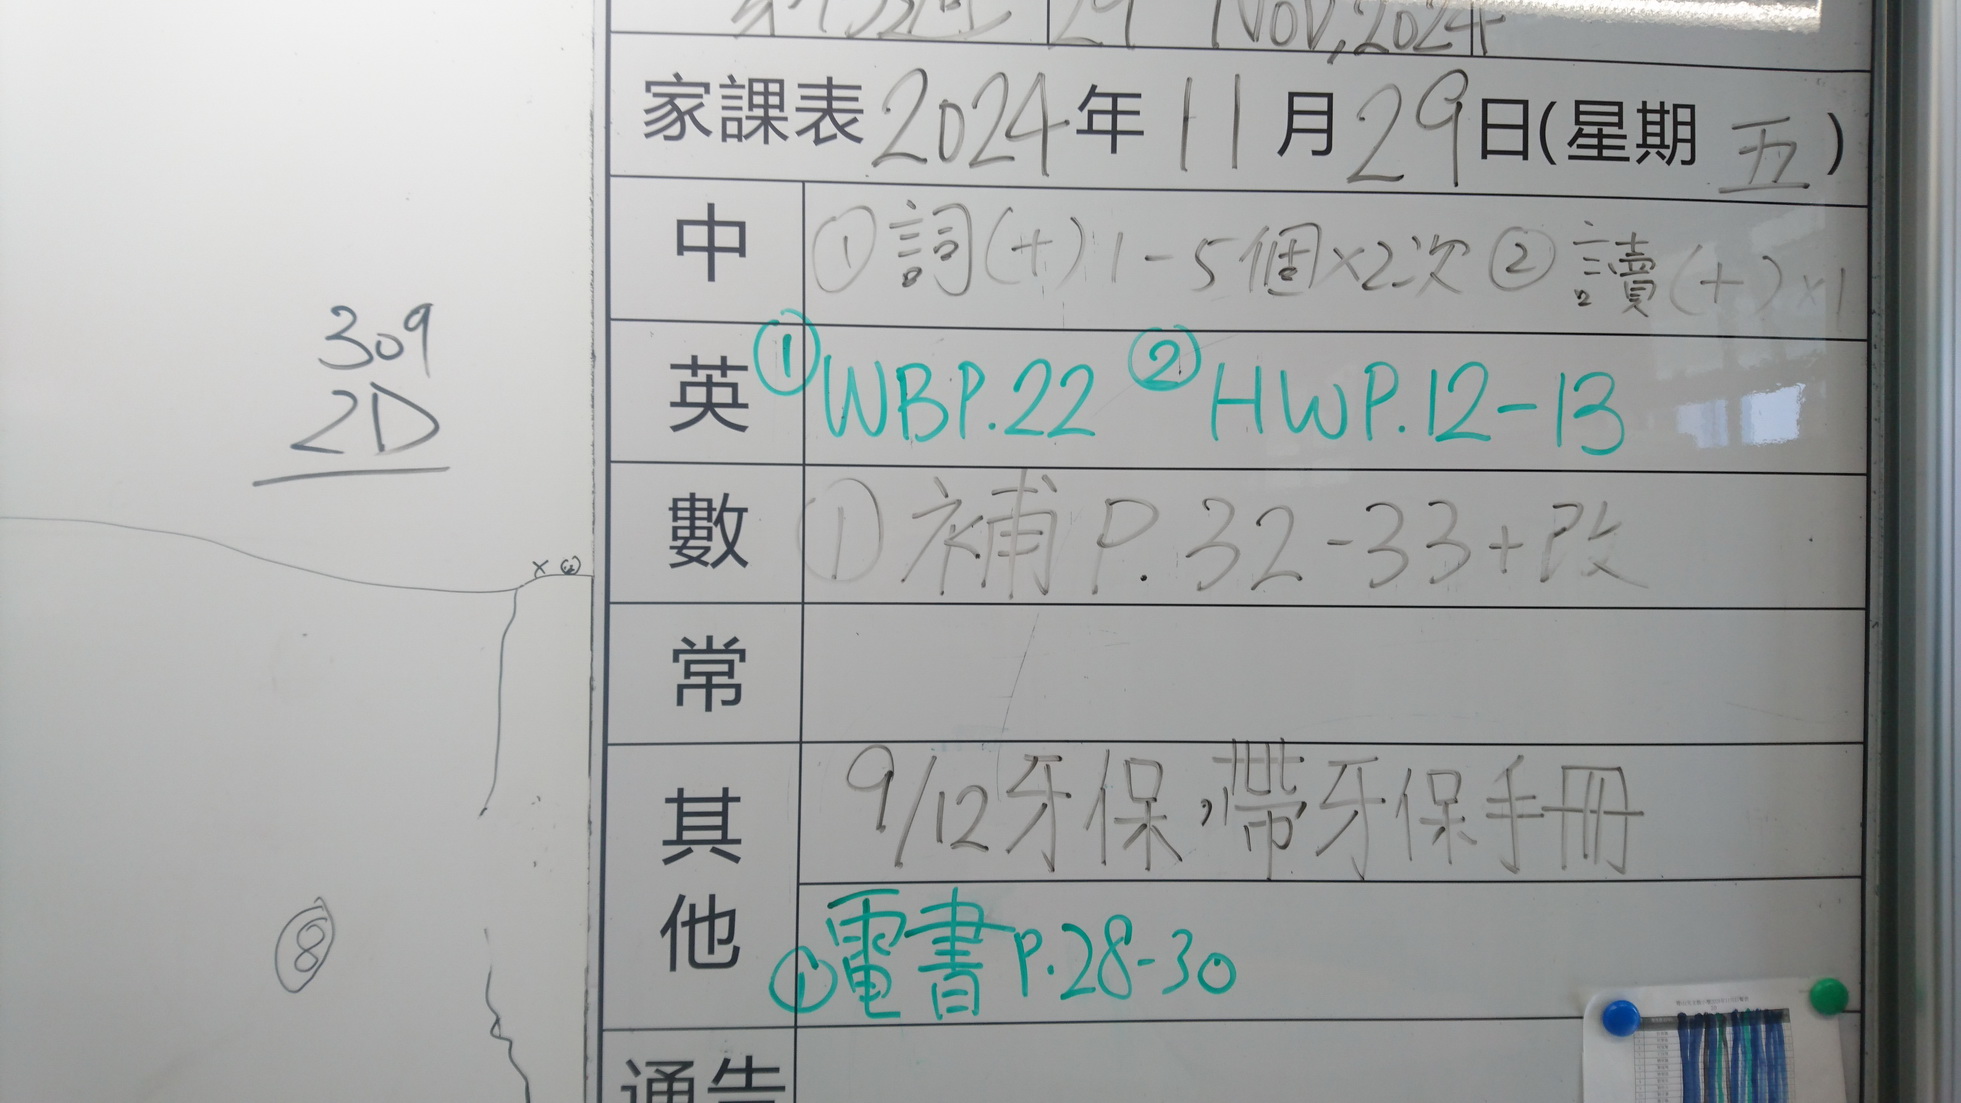 29 Nov, 2024
家課表 2024年 11月 29日(星期 五)
中 ① 詞(十) 1-5個×2次 ② 讀(十)×1
英 ① WB P.22 ② HW P.12-13
數 ① 補 P.32-33+改
常
其他 9/12 牙保,帶牙保手冊
① 電書 P.28-30
通告
309
2D
8